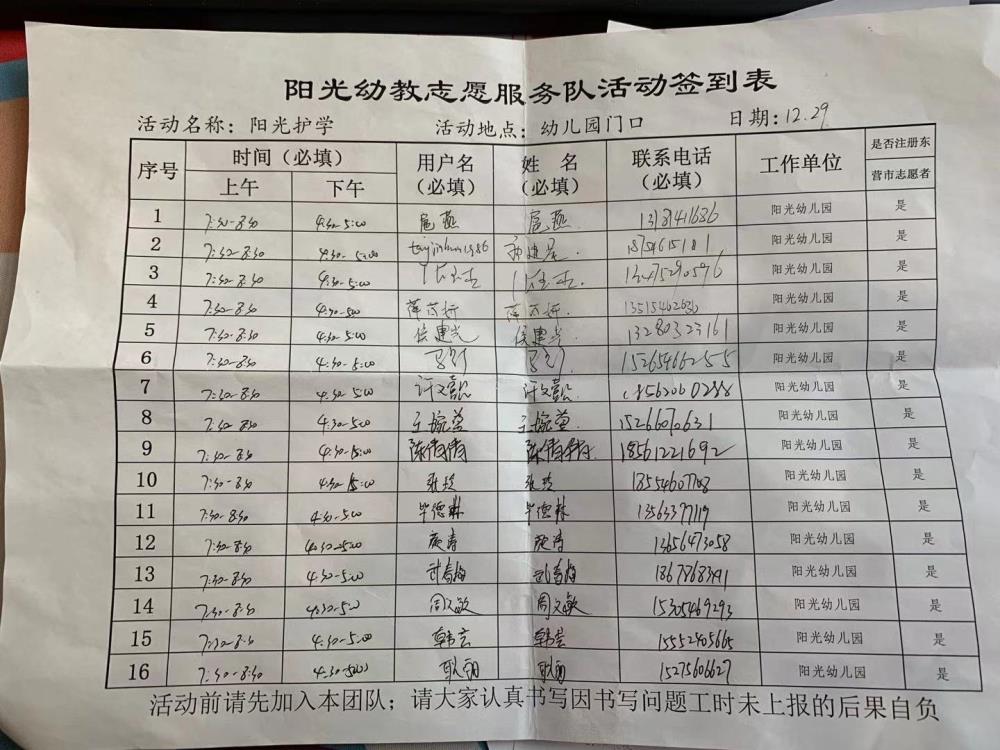 阳光幼教志愿服务队活动签到表
活动名称：阳光护学 活动地点：幼儿园门口 日期：12.29
序号 时间（必填） 用户名（必填） 姓名（必填） 联系电话（必填） 工作单位 是否注册东营市志愿者
上午 下午
1 7:30-8:30 4:30-5:00 扈燕 扈燕 阳光幼儿园 是
2 7:30-8:30 4:30-5:00 18754615181 阳光幼儿园 是
3 7:30-8:30 4:30-5:00 阳光幼儿园 是
4 7:30-8:30 4:30-5:00 阳光幼儿园 是
5 7:30-8:30 4:30-5:00 侯建光 侯建光 13280323161 阳光幼儿园 是
6 7:30-8:30 4:30-5:00 15265466255 阳光幼儿园 是
7 7:30-8:30 4:30-5:00 许文懿 许文懿 阳光幼儿园 是
8 7:30-8:30 4:30-5:00 王婉莹 王婉莹 阳光幼儿园 是
9 7:30-8:30 4:30-5:00 陈倩倩 陈倩倩 18561221692 阳光幼儿园 是
10 7:30-8:30 4:30-5:00 张玲 张玲 18554607708 阳光幼儿园 是
11 7:30-8:30 4:30-5:00 毕德林 毕德林 13563377119 阳光幼儿园 是
12 7:30-8:30 4:30-5:00 13656473058 阳光幼儿园 是
13 7:30-8:30 4:30-5:00 武春梅 武春梅 阳光幼儿园 是
14 7:30-8:30 4:30-5:00 周文敏 周文敏 15305469293 阳光幼儿园 是
15 7:30-8:30 4:30-5:00 韩芸 韩芸 15552405665 阳光幼儿园 是
16 7:30-8:30 4:30-5:00 15275606627 阳光幼儿园 是
活动前请先加入本团队；请大家认真书写因书写问题工时未上报的后果自负